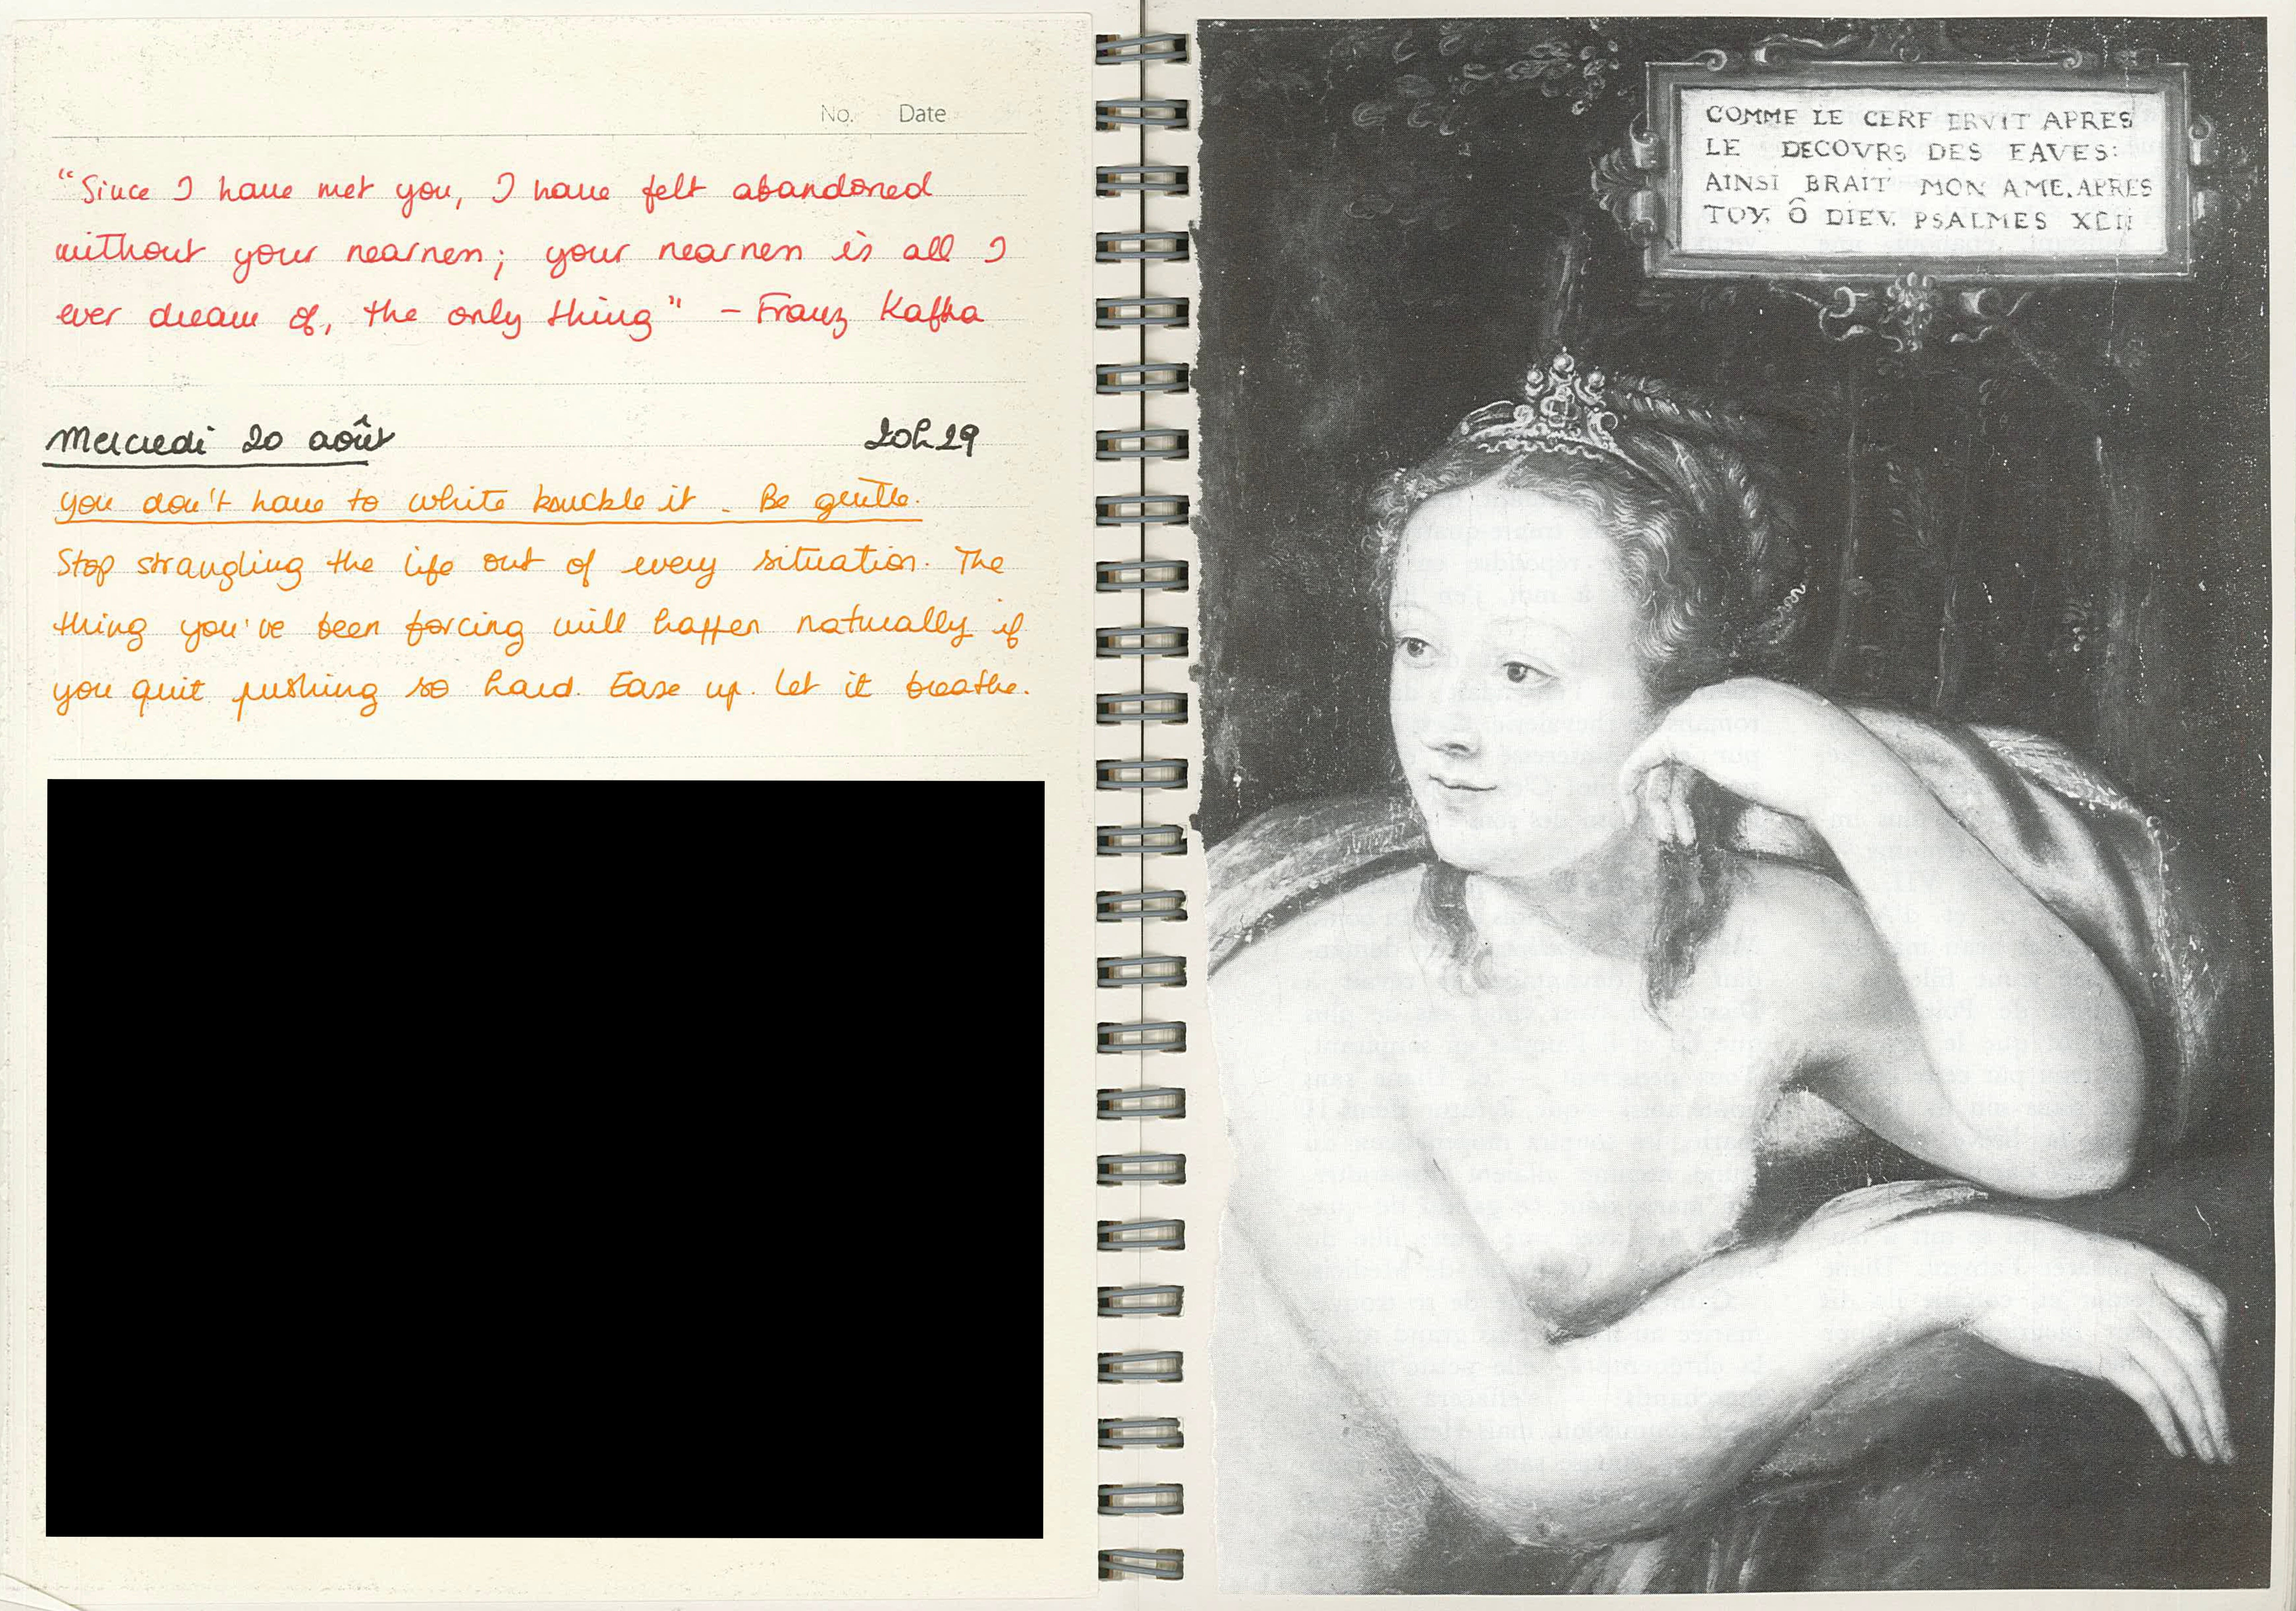 No. Date
“Since I have met you, I have felt abandoned
without your nearness; your nearness is all I
ever dream of, the only thing” – Franz Kafka
Mercredi 20 août 20h29
you don't have to white knuckle it. Be gentle.
Stop strangling the life out of every situation. The
thing you've been forcing will happen naturally if
you quit pushing so hard. Ease up. Let it breathe.
COMME LE CERF BRVIT APRES
LE DECOVRS DES EAVES:
AINSI BRAIT MON AME. APRES
TOY, Ô DIEV. PSALMES XLII